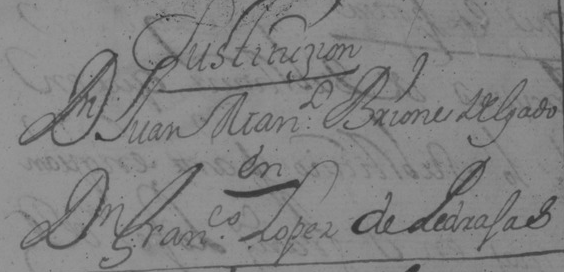 Sustituzion
Dn Juan Man.l Briones Delgado
en
Dn Fran.co Lopez de Pedrasas